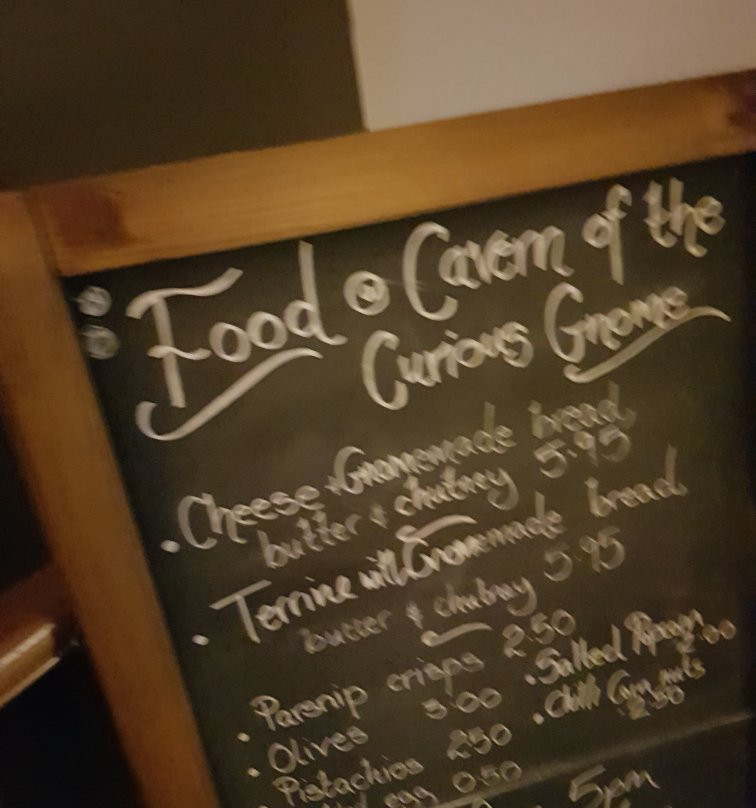 Food @ Cavern of the
Curious Gnome
• Cheese + Gnomemade bread
butter + chutney 5.95
• Terrine with Gnomemade bread
butter + chutney 5.95
• Parsnip crisps 2.50
• Salted Popcorn 2.00
• Olives 3.00
• Chilli Corn nuts 2.50
Pistachios 250
egg 0.50
5pm